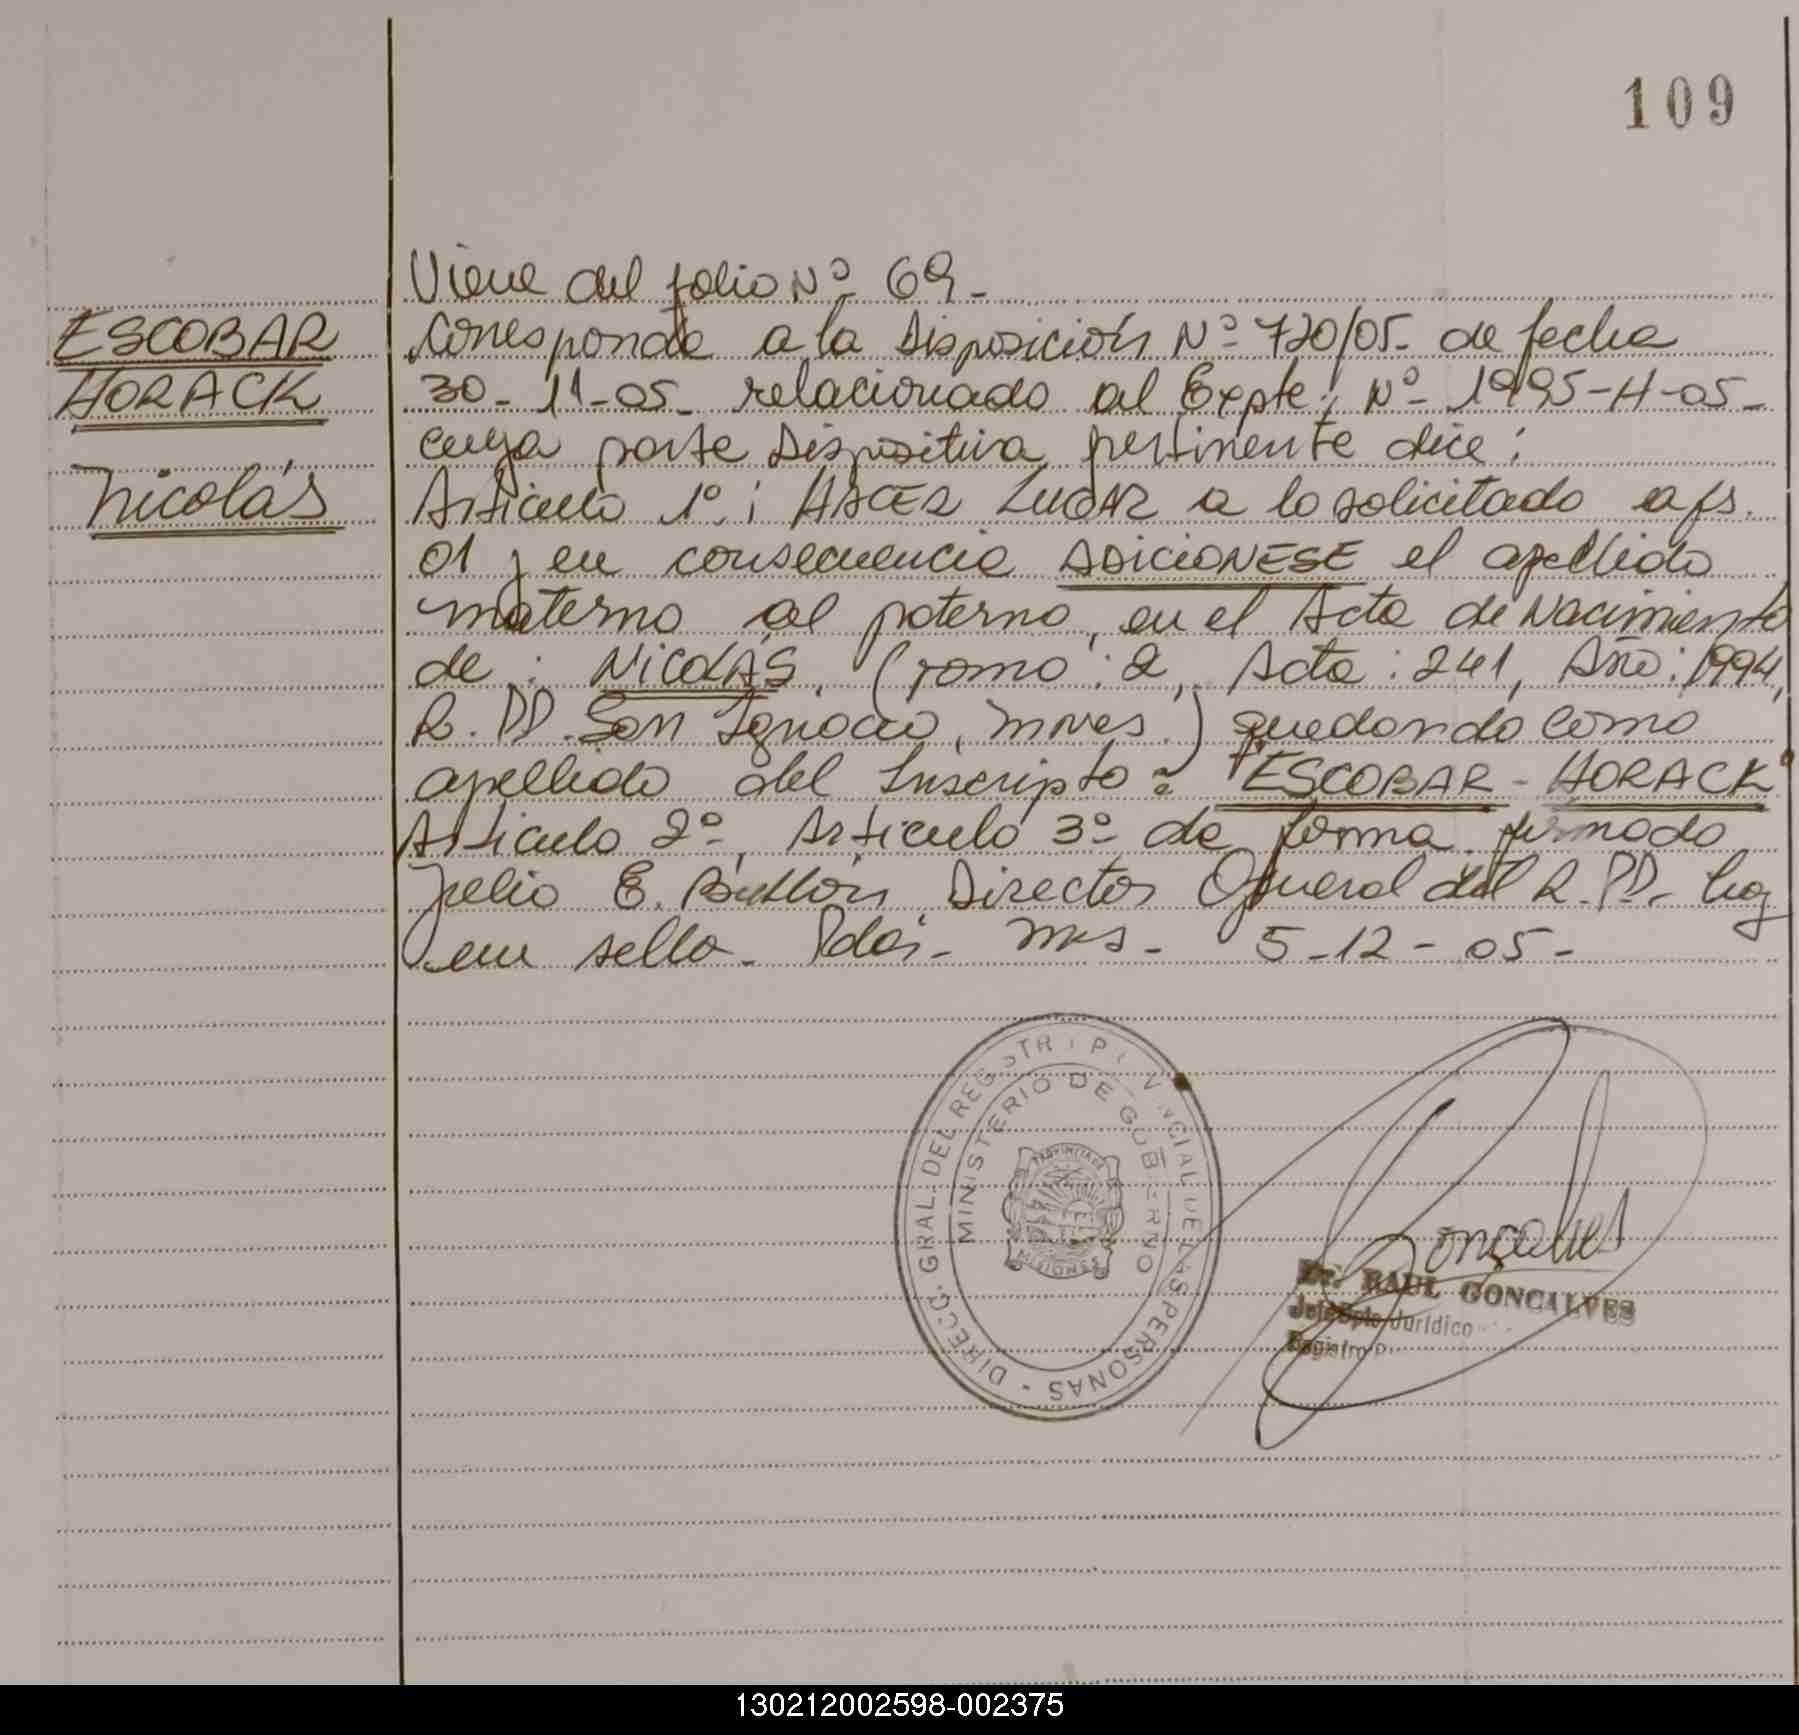 109
Viene del folio Nº 69-
ESCOBAR
HORACK
Nicolás
Corresponde a la Disposición Nº 720/05- de fecha
30-11-05- relacionado al Expte; Nº 1995-H-05-
cuya parte Dispositiva pertinente dice:
Articulo 1º: HACER LUGAR a lo solicitado a fs.
01 y en consecuencia ADICIONESE el apellido
materno al paterno, en el Acta de Nacimiento
de: NICOLÁS, (Tomo: 2, Acta: 241, Año: 1994,
R. PP. San Ignacio, Mnes.) quedando como
apellido del Inscripto: "ESCOBAR-HORACK"
Articulo 2º, Articulo 3º de forma firmado
Julio E. Director General del R. PP. hay
un sello- Pdas- Mns- 5-12-05-
DIRECC. GRAL. DEL REGISTR PR V NCIAL DE LAS PERSONAS -
MINISTERIO DE GOBIERNO
PROVINCIA DE
MISIONES
Gonçalves
Dr. RAUL GONCALVES
Jefe Dpto. Jurídico
Registro P
130212002598-002375